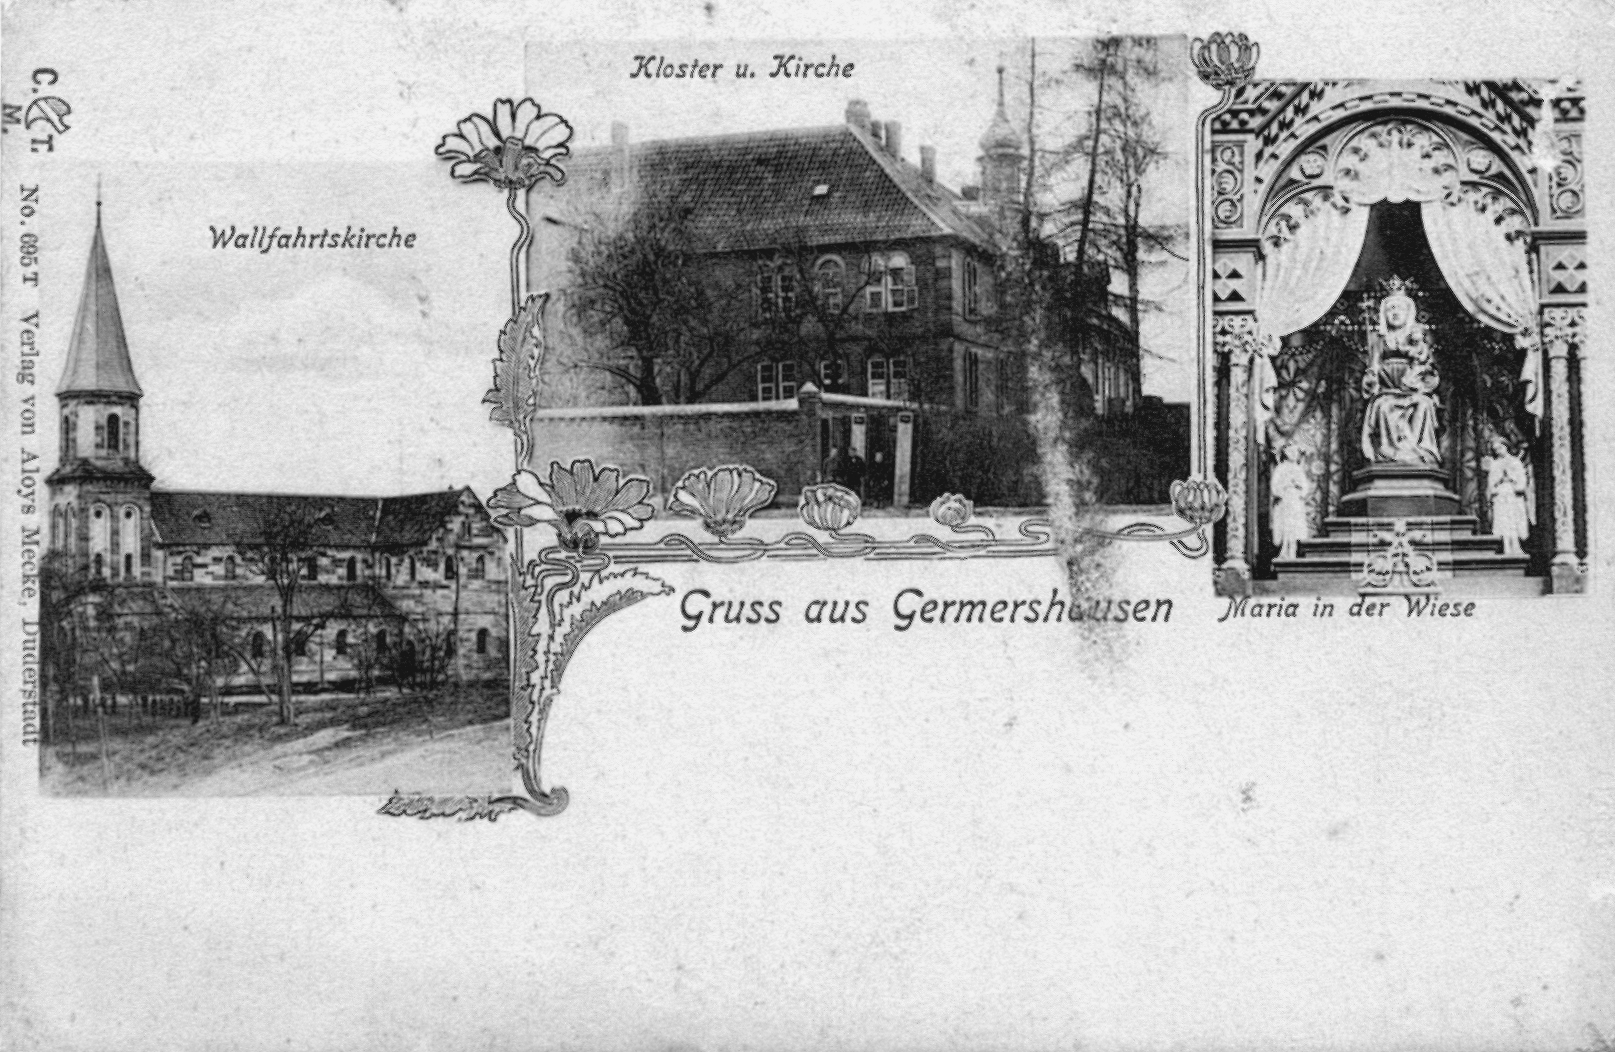 Kloster u. Kirche
Wallfahrtskirche
Gruss aus Germershausen
Maria in der Wiese
C. T.
M.
No. 695 T Verlag von Aloys Mecke, Duderstadt